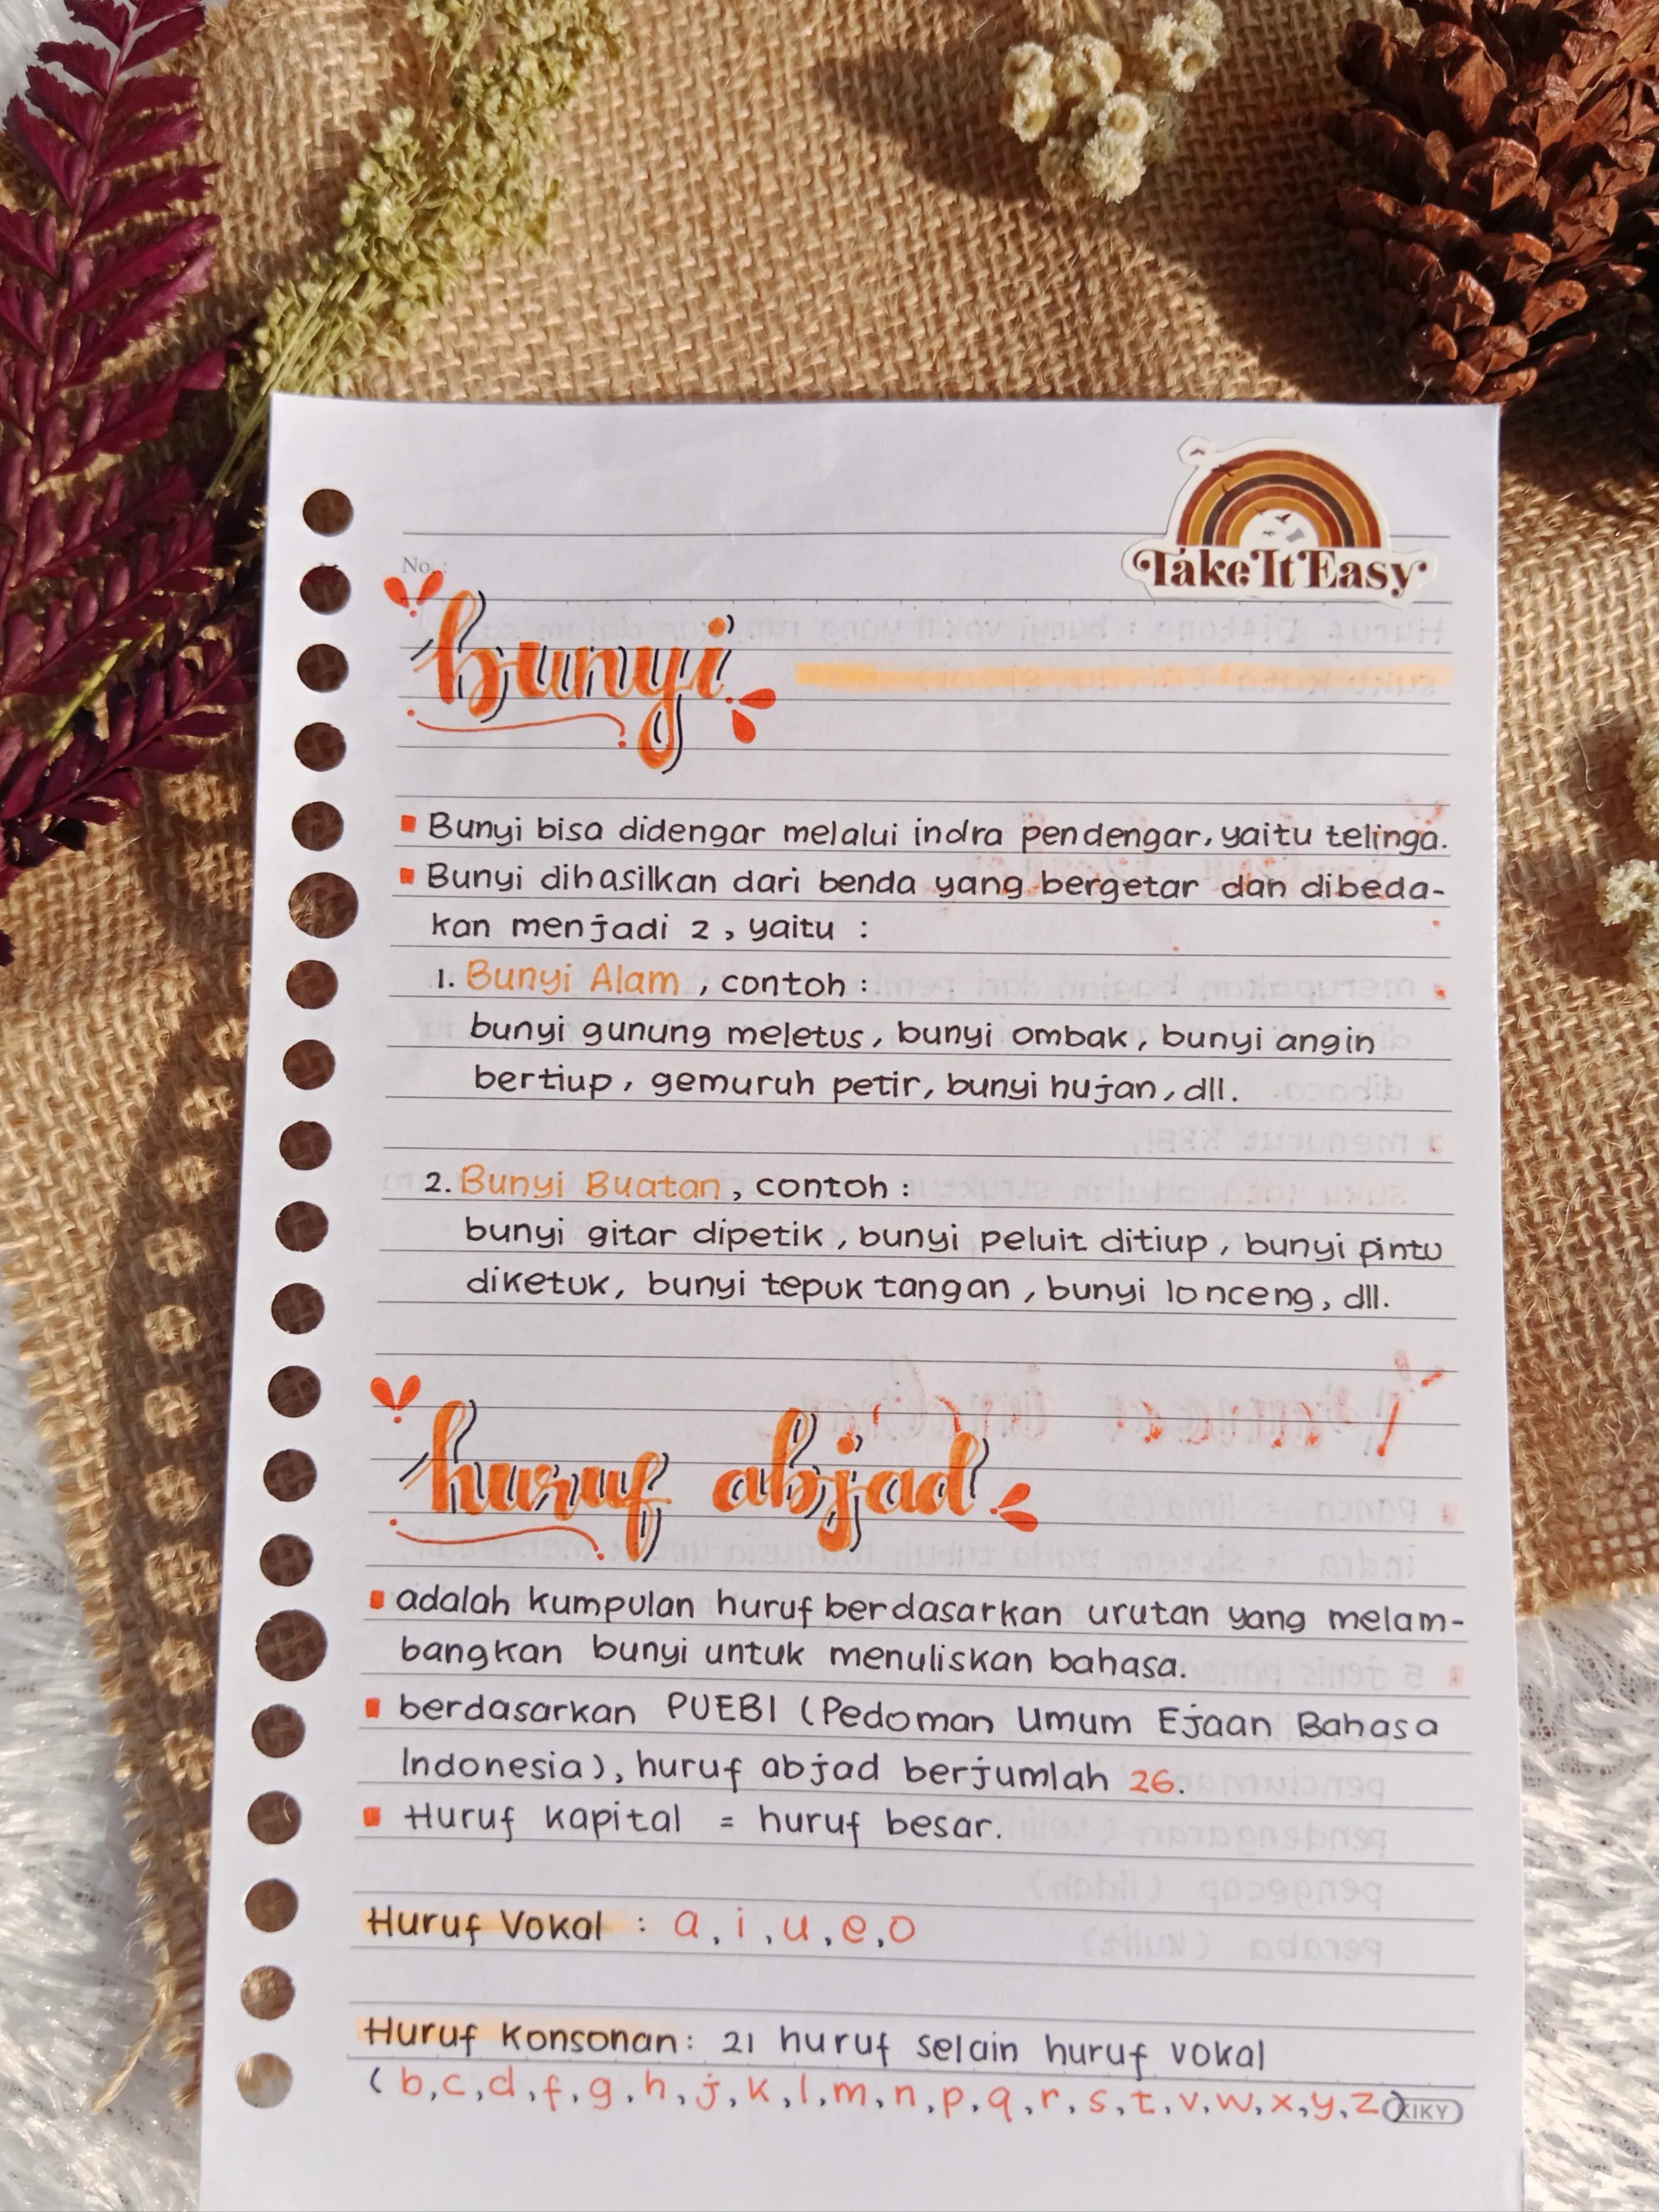 Take It Easy
No. :
bunyi
Bunyi bisa didengar melalui indra pendengar, yaitu telinga.
Bunyi dihasilkan dari benda yang bergetar dan dibeda-
kan menjadi 2, yaitu :
1. Bunyi Alam, contoh :
bunyi gunung meletus, bunyi ombak, bunyi angin
bertiup, gemuruh petir, bunyi hujan, dll.
2. Bunyi Buatan, contoh :
bunyi gitar dipetik, bunyi peluit ditiup, bunyi pintu
diketuk, bunyi tepuk tangan, bunyi lonceng, dll.
huruf abjad
adalah kumpulan huruf berdasarkan urutan yang melam-
bangkan bunyi untuk menuliskan bahasa.
berdasarkan PUEBI (Pedoman Umum Ejaan Bahasa
Indonesia), huruf abjad berjumlah 26.
Huruf kapital = huruf besar.
Huruf Vokal : a, i, u, e, o
Huruf Konsonan : 21 huruf selain huruf vokal
(b, c, d, f, g, h, j, k, l, m, n, p, q, r, s, t, v, w, x, y, z)
KIKY